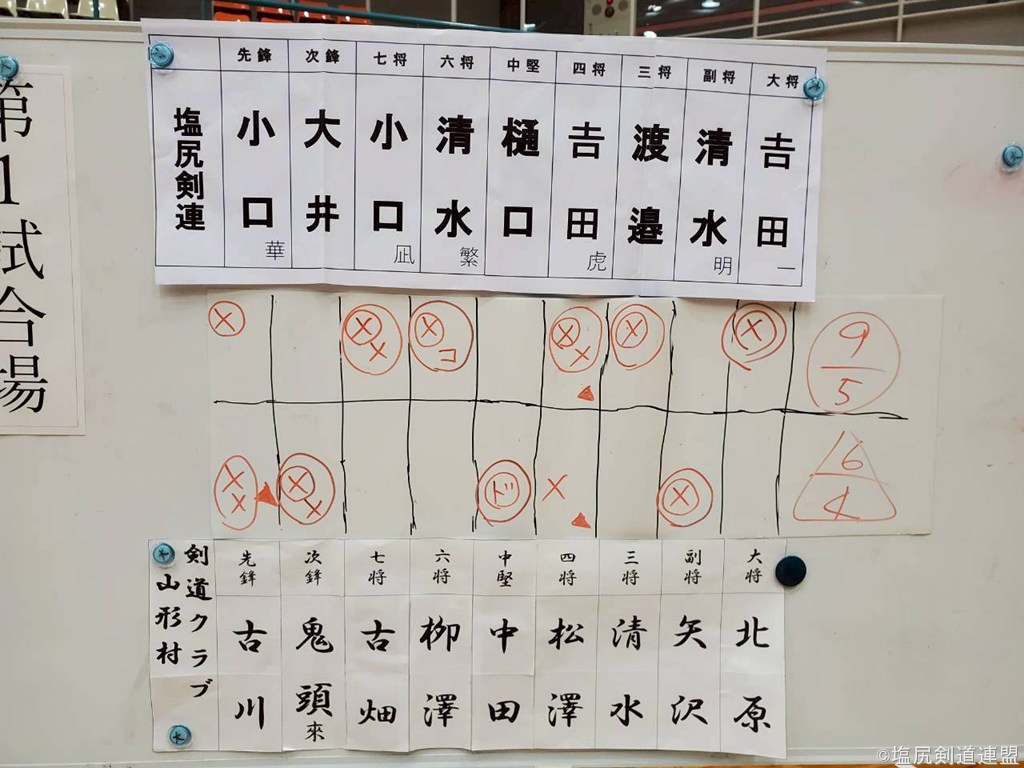 第1試合場
先鋒 次鋒 七将 六将 中堅 四将 三将 副将 大将
塩尻剣連
小口 華
大井
小口 凪
清水 繁
樋口
𠮷田 虎
渡邉
清水 明
𠮷田 一
メ メメ メコ メメ メ メ 9/5
メメ メメ ド メ メ 6/4
先鋒 次鋒 七将 六将 中堅 四将 三将 副将 大将
剣道クラブ
山形村
古川
鬼頭 來
古畑
柳澤
中田
松澤
清水
矢沢
北原
©塩尻剣道連盟